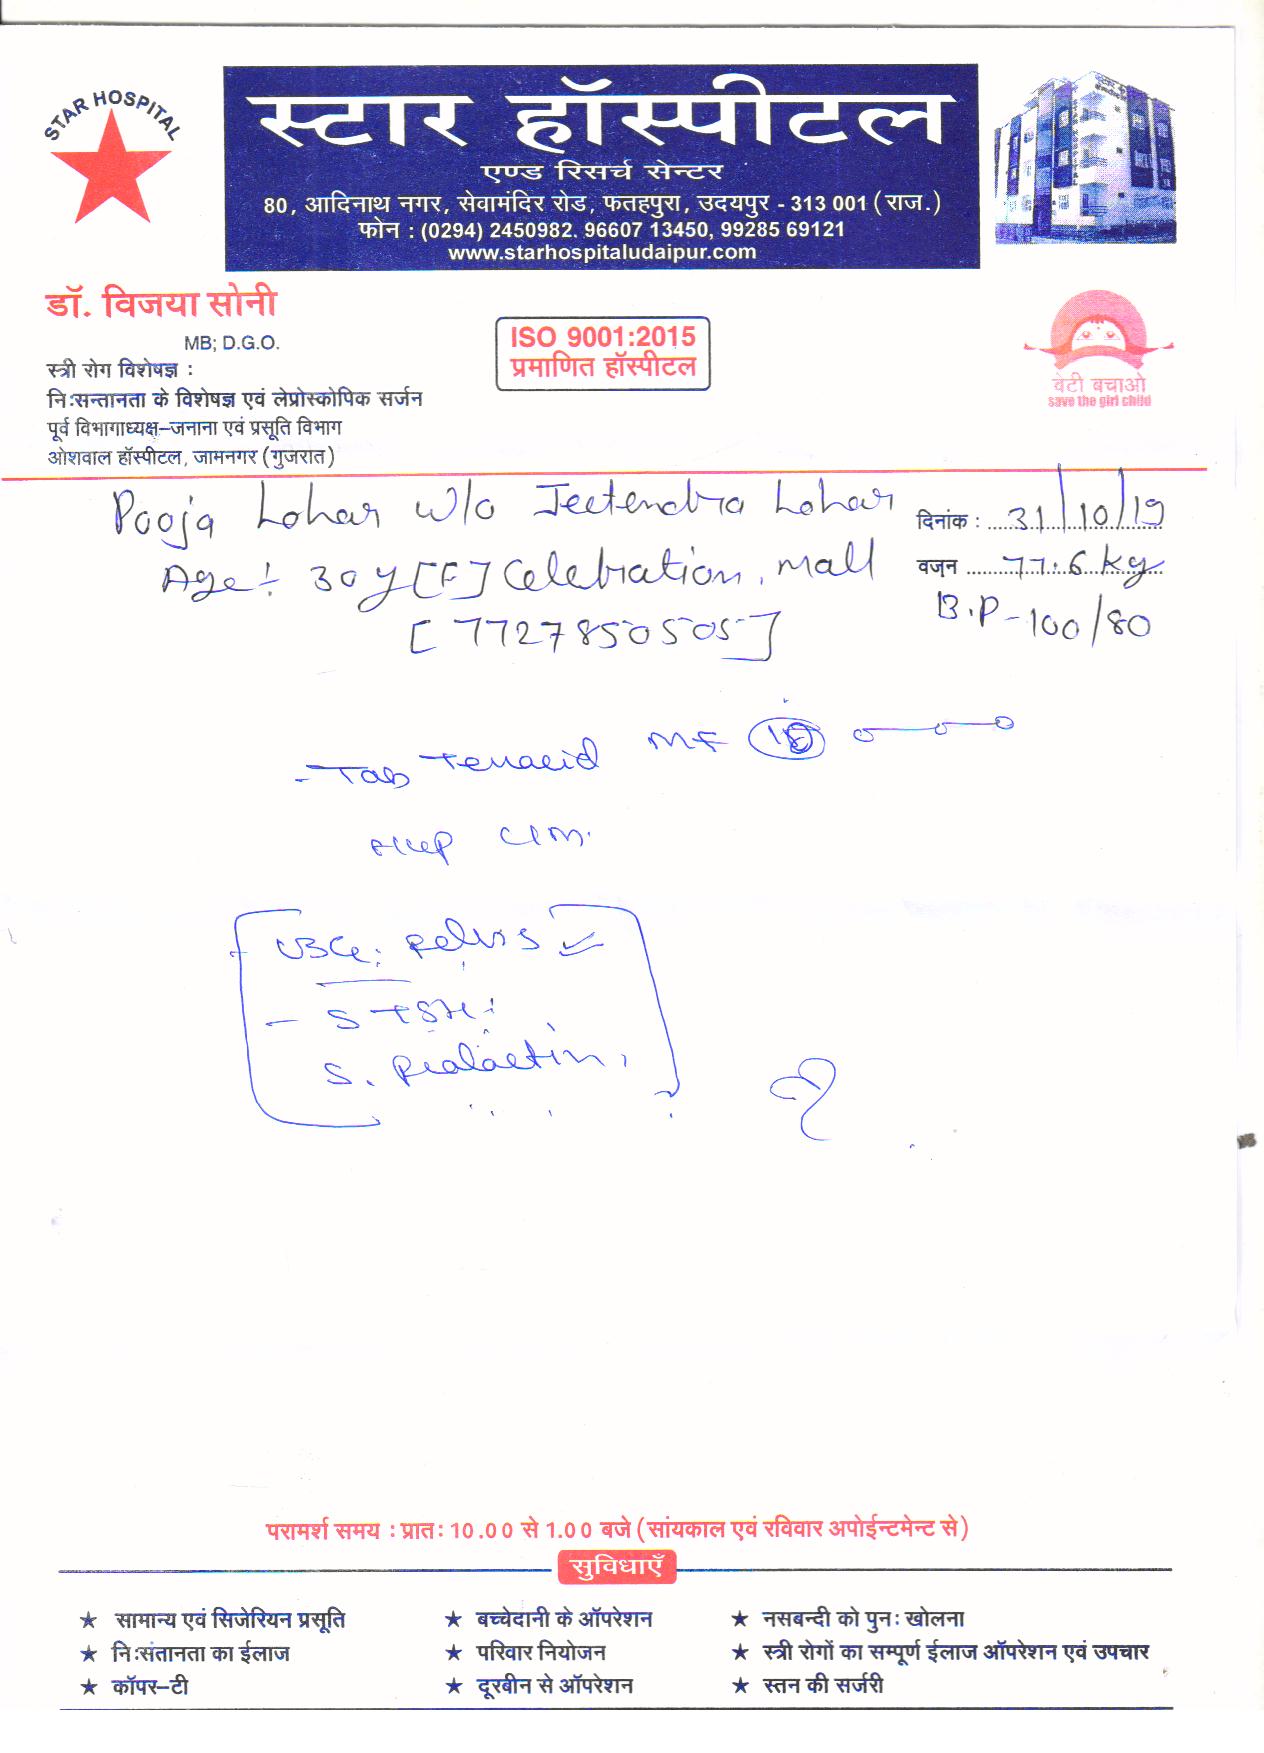 STAR HOSPITAL
स्टार हॉस्पीटल
एण्ड रिसर्च सेन्टर
80, आदिनाथ नगर, सेवामंदिर रोड, फतहपुरा, उदयपुर - 313 001 (राज.)
फोन : (0294) 2450982. 96607 13450, 99285 69121
www.starhospitaludaipur.com
डॉ. विजया सोनी
MB; D.G.O.
स्त्री रोग विशेषज्ञ :
निःसन्तानता के विशेषज्ञ एवं लेप्रोस्कोपिक सर्जन
पूर्व विभागाध्यक्ष-जनाना एवं प्रसूति विभाग
ओशवाल हॉस्पीटल, जामनगर (गुजरात)
ISO 9001:2015
प्रमाणित हॉस्पीटल
बेटी बचाओ
save the girl child
Pooja Lohar w/o Jeetendra Lohar
दिनांक : 31/10/19
Age:- 30y [F] Celebration, mall
वज़न 77.6 kg
[7727850505]
B.P - 100/80
- Tab MF
- USG: Pelvis ✓
- S TSH:
S. Prolactin,
परामर्श समय : प्रातः 10.00 से 1.00 बजे (सांयकाल एवं रविवार अपोईन्टमेन्ट से)
सुविधाएँ
★ सामान्य एवं सिजेरियन प्रसूति
★ बच्चेदानी के ऑपरेशन
★ नसबन्दी को पुनः खोलना
★ निःसंतानता का ईलाज
★ परिवार नियोजन
★ स्त्री रोगों का सम्पूर्ण ईलाज ऑपरेशन एवं उपचार
★ कॉपर-टी
★ दूरबीन से ऑपरेशन
★ स्तन की सर्जरी